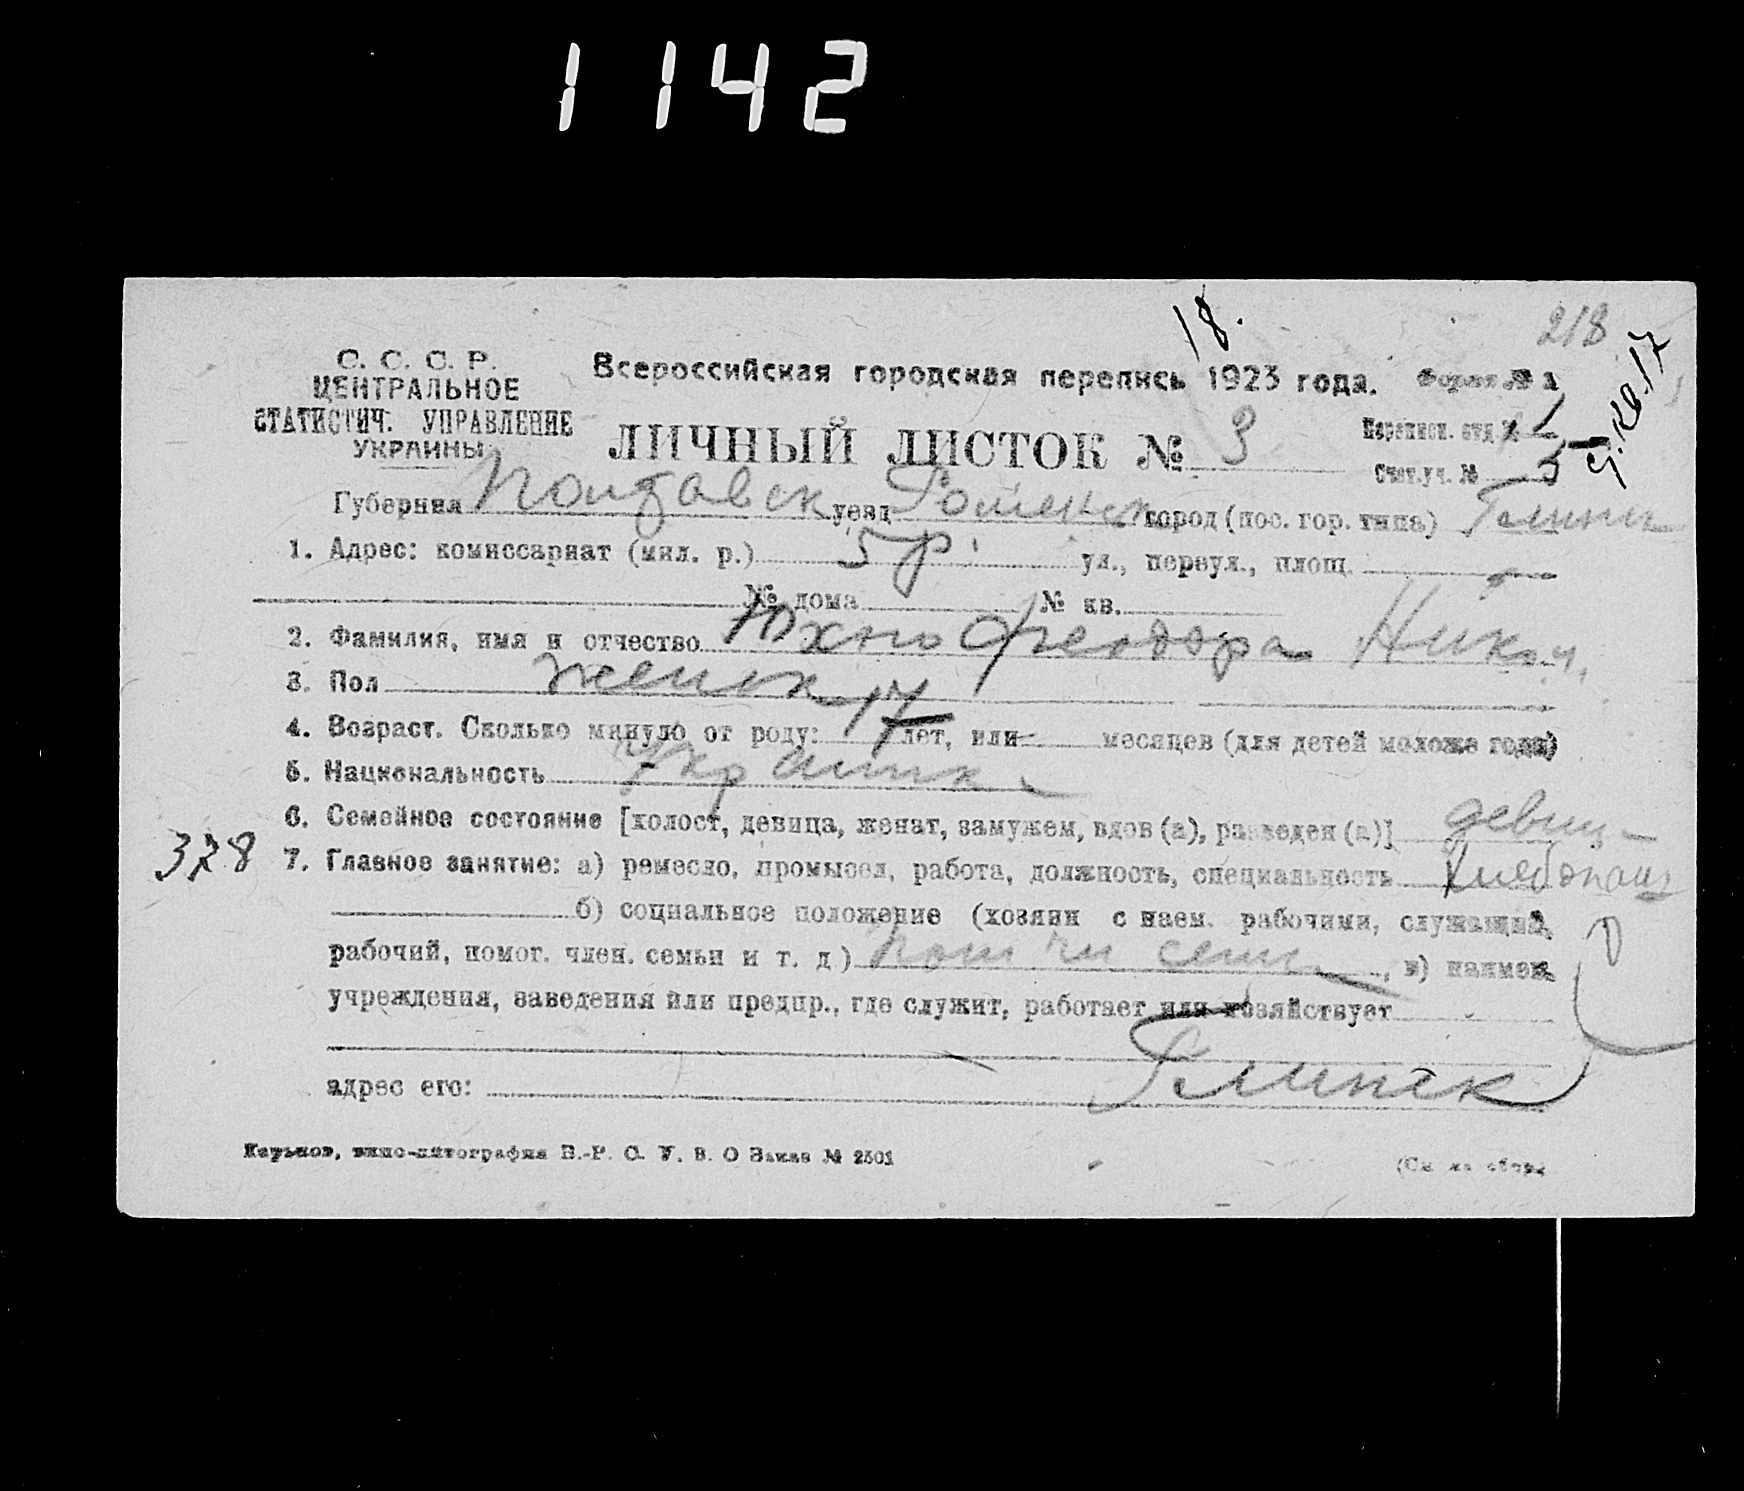 1142
218
18.
С. С. С. Р.
ЦЕНТРАЛЬНОЕ
СТАТИСТИЧ. УПРАВЛЕНИЕ
УКРАИНЫ
Всероссийская городская перепись 1923 года. Форма № 1
ЛИЧНЫЙ ЛИСТОК № 3
Переписн. отд №
Счет. уч. № 5
Губерния Полтавск уезд Роменск город (пос. гор. типа) Глинск
1. Адрес: комиссариат (мил. р.) 5 р. ул., переул., площ.
№ дома № кв.
2. Фамилия, имя и отчество Юхно Феодора Никол.
3. Пол женск
4. Возраст. Сколько минуло от роду: 17 лет, или месяцев (для детей моложе года)
5. Национальность Украинка
6. Семейное состояние [холост, девица, женат, замужем, вдов (а), разведен (а)] девица
378
7. Главное занятие: а) ремесло, промысел, работа, должность, специальность хлебопаш
б) социальное положение (хозяин с наем. рабочими, служащий,
рабочий, помог. член. семьи и т. д) пом чл семьи, в) наимен.
учреждения, заведения или предпр., где служит, работает или хозяйствует
адрес его: Глинск
Харьков, типо-литография В.-Р. С. У. В. О Заказ № 2501
(См на обор.